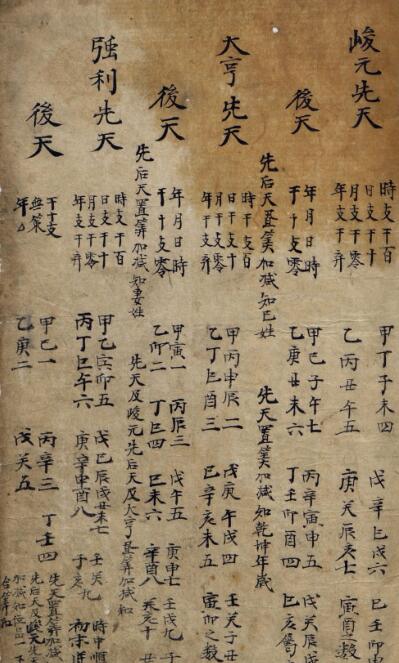 峻元先天
時支干百
日支干十
月支干零
年支干弃
甲丁子未四 戊辛巳戌六 己壬卯申
乙丙丑午五 庚癸辰亥七 寅酉之数
後天
年月日時
干十支零
甲己子午七 丙辛寅申五 戊癸辰戌
乙庚丑未六 丁壬卯酉四 巳亥
先后天置筭加减知己姓 先天置筭加减知乾坤年歲
大亨先天
時干支百
日支干十
月支干零
年支干弃
甲丙申辰二 戊庚午戌四 壬癸子丑
乙丁巳酉三 己辛亥未五 寅卯之数
後天
年月日時
干十支零
甲寅一 丙辰三 戊午五 庚申七 壬戌九 子
乙卯二 丁巳四 己未六 辛酉八 癸亥十 丑
先后天置筭加减知妻姓 先天及峻元先天及大亨置筭加减知
強利先天
時支干百
日支干十
月支干零
年支干弃
甲乙亥卯五 戊己辰戌丑未七 壬癸九 時申順
丙丁巳午六 庚辛申酉八 子亥九
後天
干十支
無策
年
甲己一 丙辛三 丁壬四
乙庚二 戊癸五
先天置筭加减
先后天及峻元先天